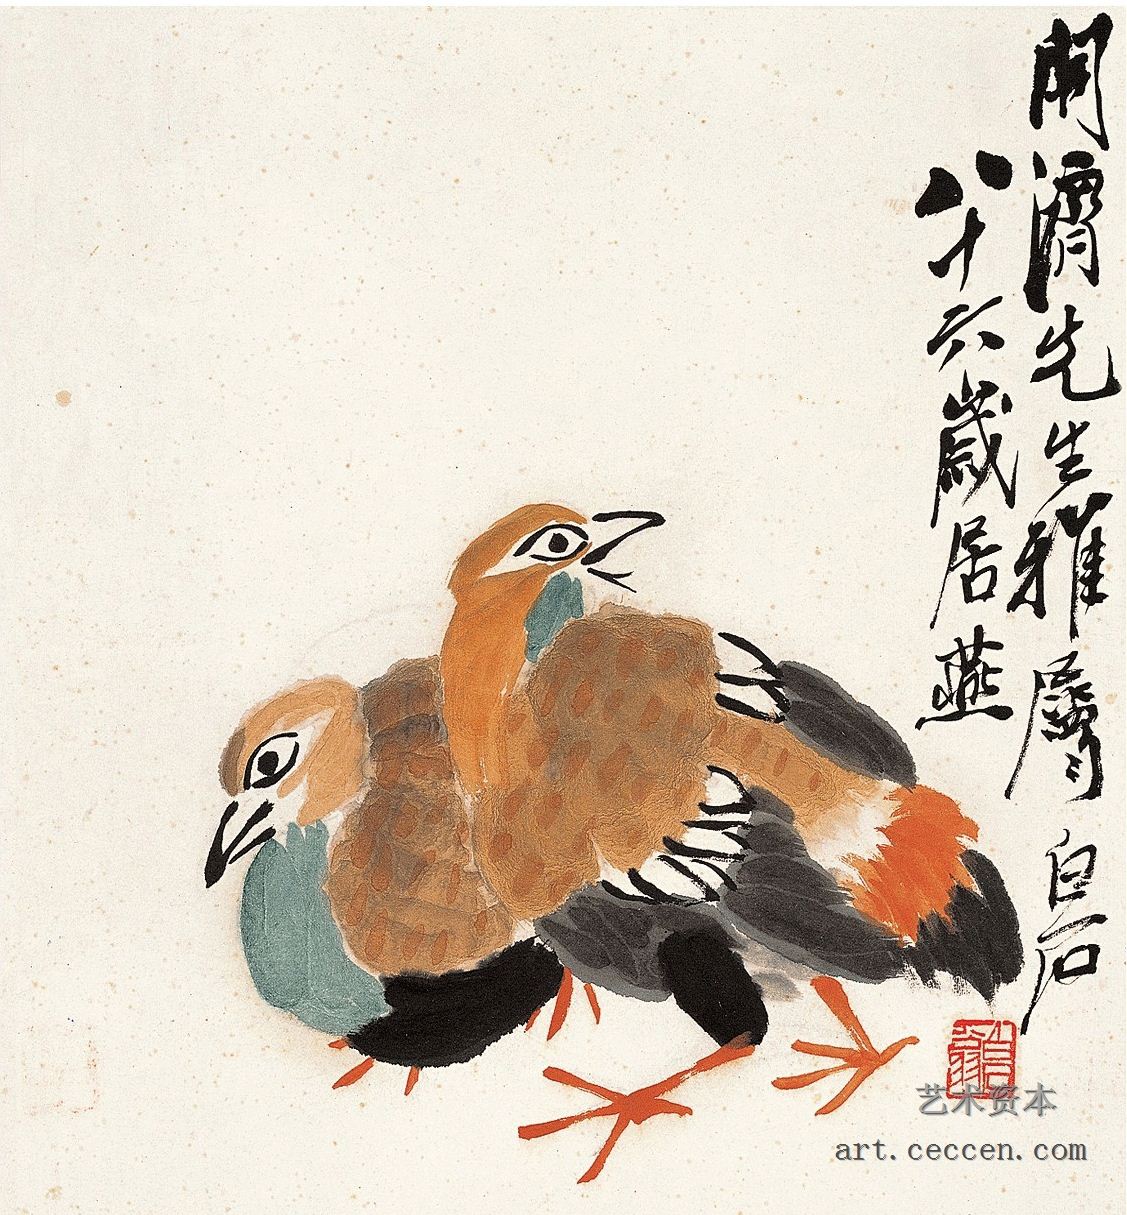 開濟先生雅屬 白石
八十六歲居燕
艺术资本
art.ceccen.com